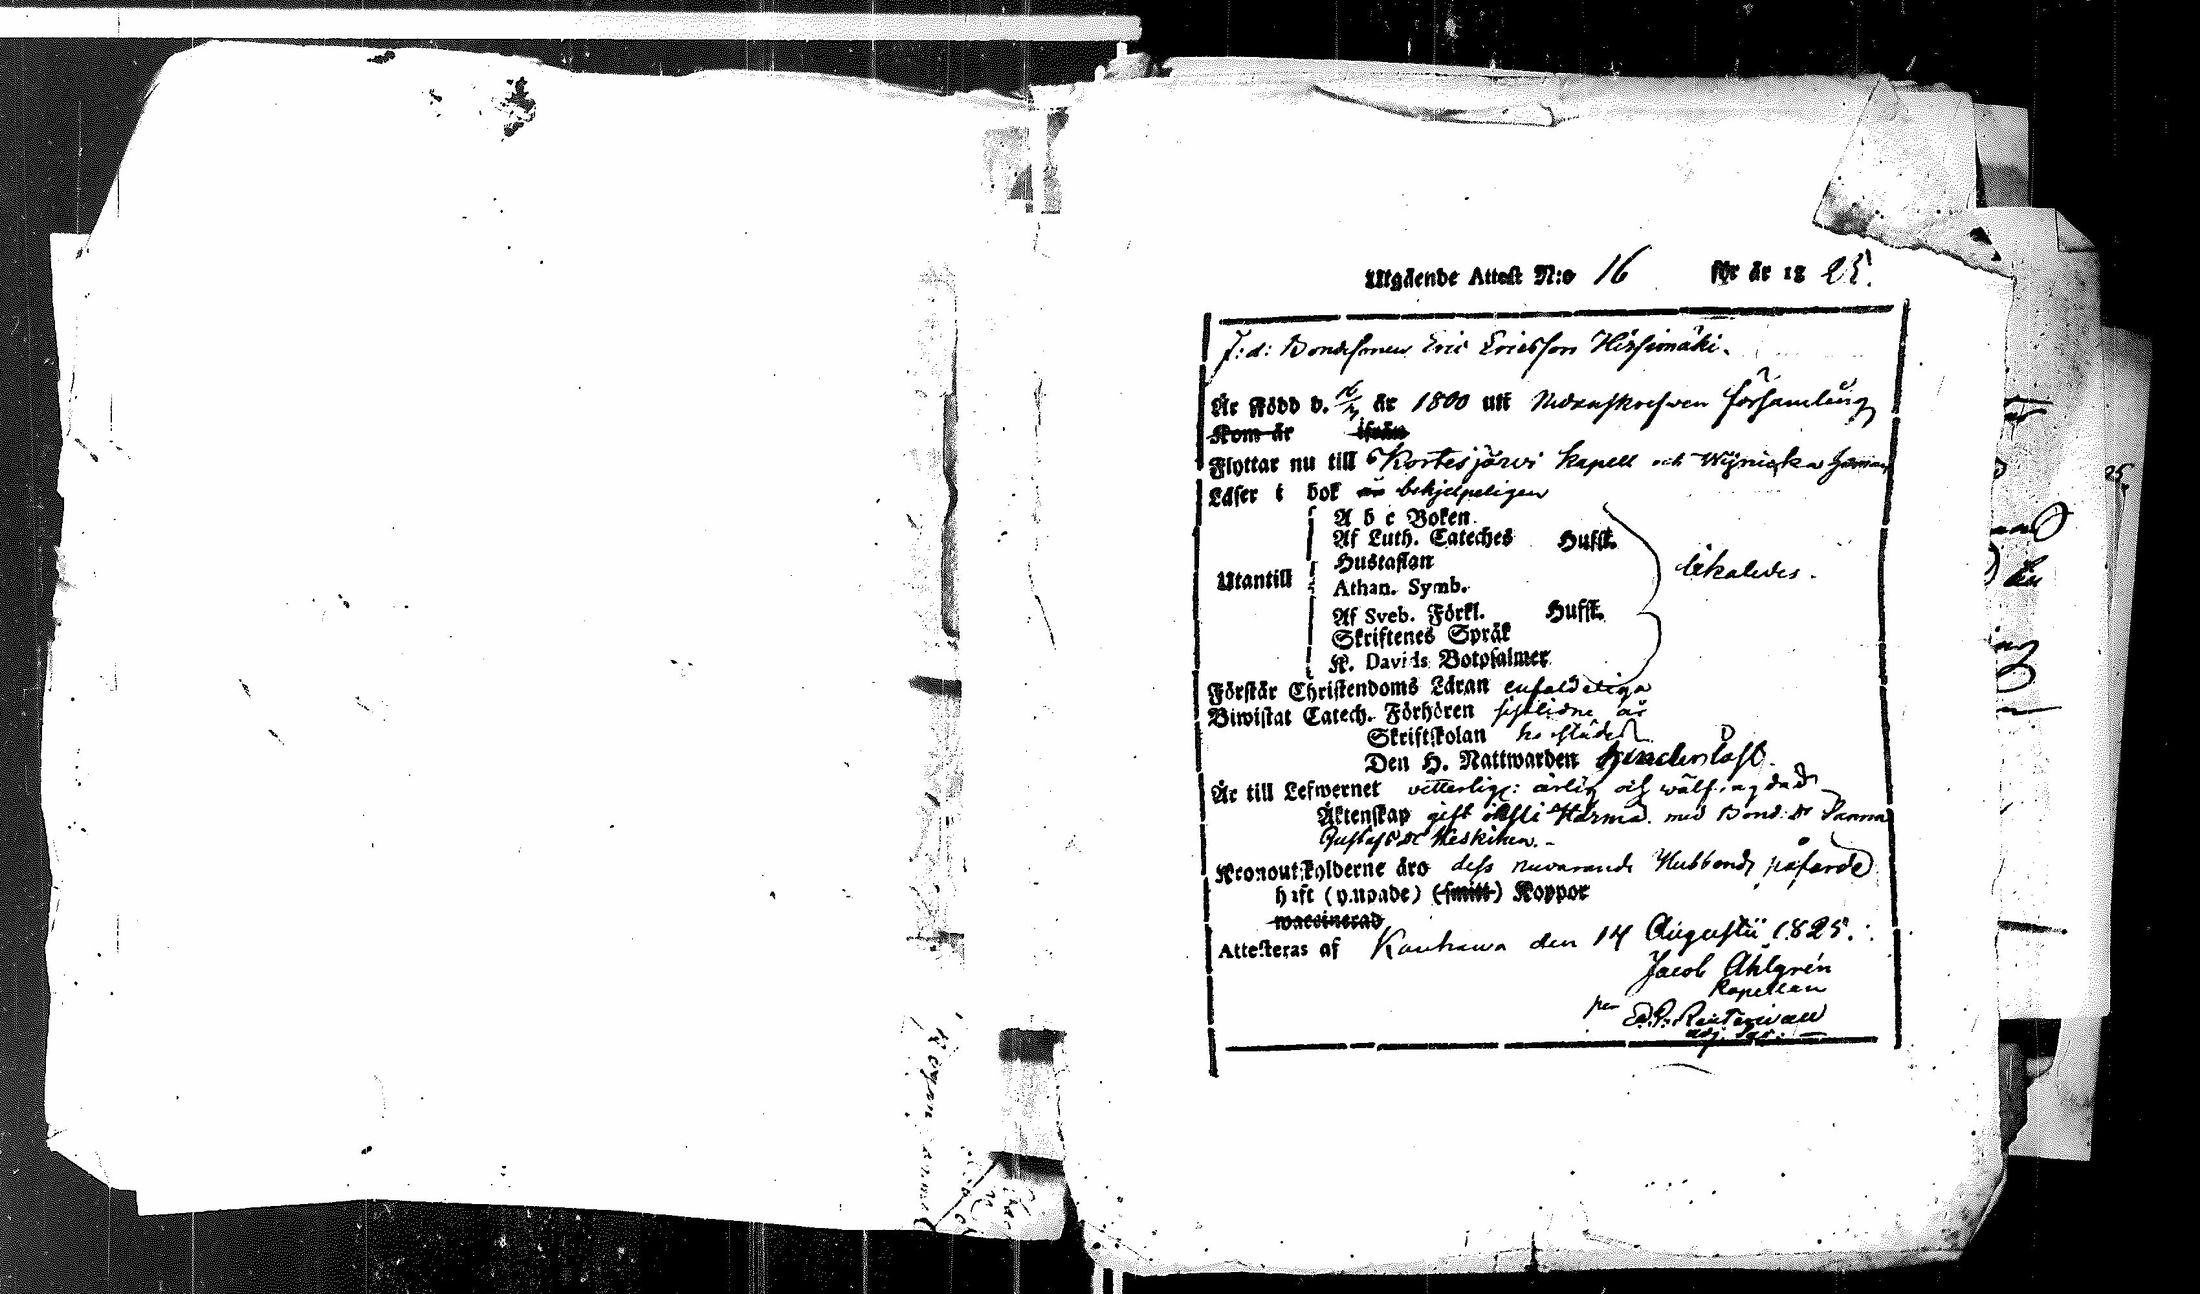 Utgående Attest N:o 16 för år 1825.
F:d: Bondesonen Eric Ericsson Hirsimäki.
Är Född d. 16/7 år 1800 uti Nedanskrefwen församling
Kom år ifrån
Flyttar nu till Kortesjärvi kapell och
Läser i bok behjelpeligen
A b c Boken
Af Luth. Cateches Hufst.
Hustaflan
Utantill Athan. Symb. likaledes.
Af Sveb. Förkl. Hufst.
Skriftenes Språk
K. Davids Botpsalmer
Förstår Christendoms Läran enfaldeliga
Biwistat Catech. Förhören sistlidne år
Skriftskolan
Den H. Nattwarden hinderslöst.
Är till Lefwernet ärlig och wälfrägdad
Äktenskap gift Härmä med Bond: Dr Sanna
Gustafs Dr Keskinen.
Kronoutskylderne äro dess nuvarande Husbonde påförde
haft (ympade) (smitt) Koppor
waccinerad
Attesteras af Kauhawa den 14 Augustii 1825.
Jacob Ahlgrén
Kapellan
per